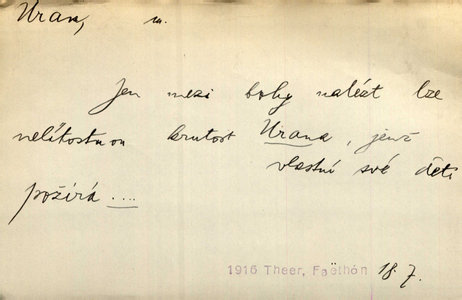 Uran, m.
Jen mezi bohy nalézt lze
nelítostnou krutost Urana, jenž
vlastní své děti
požírá ....
1916 Theer, Faëthón 18. 7.